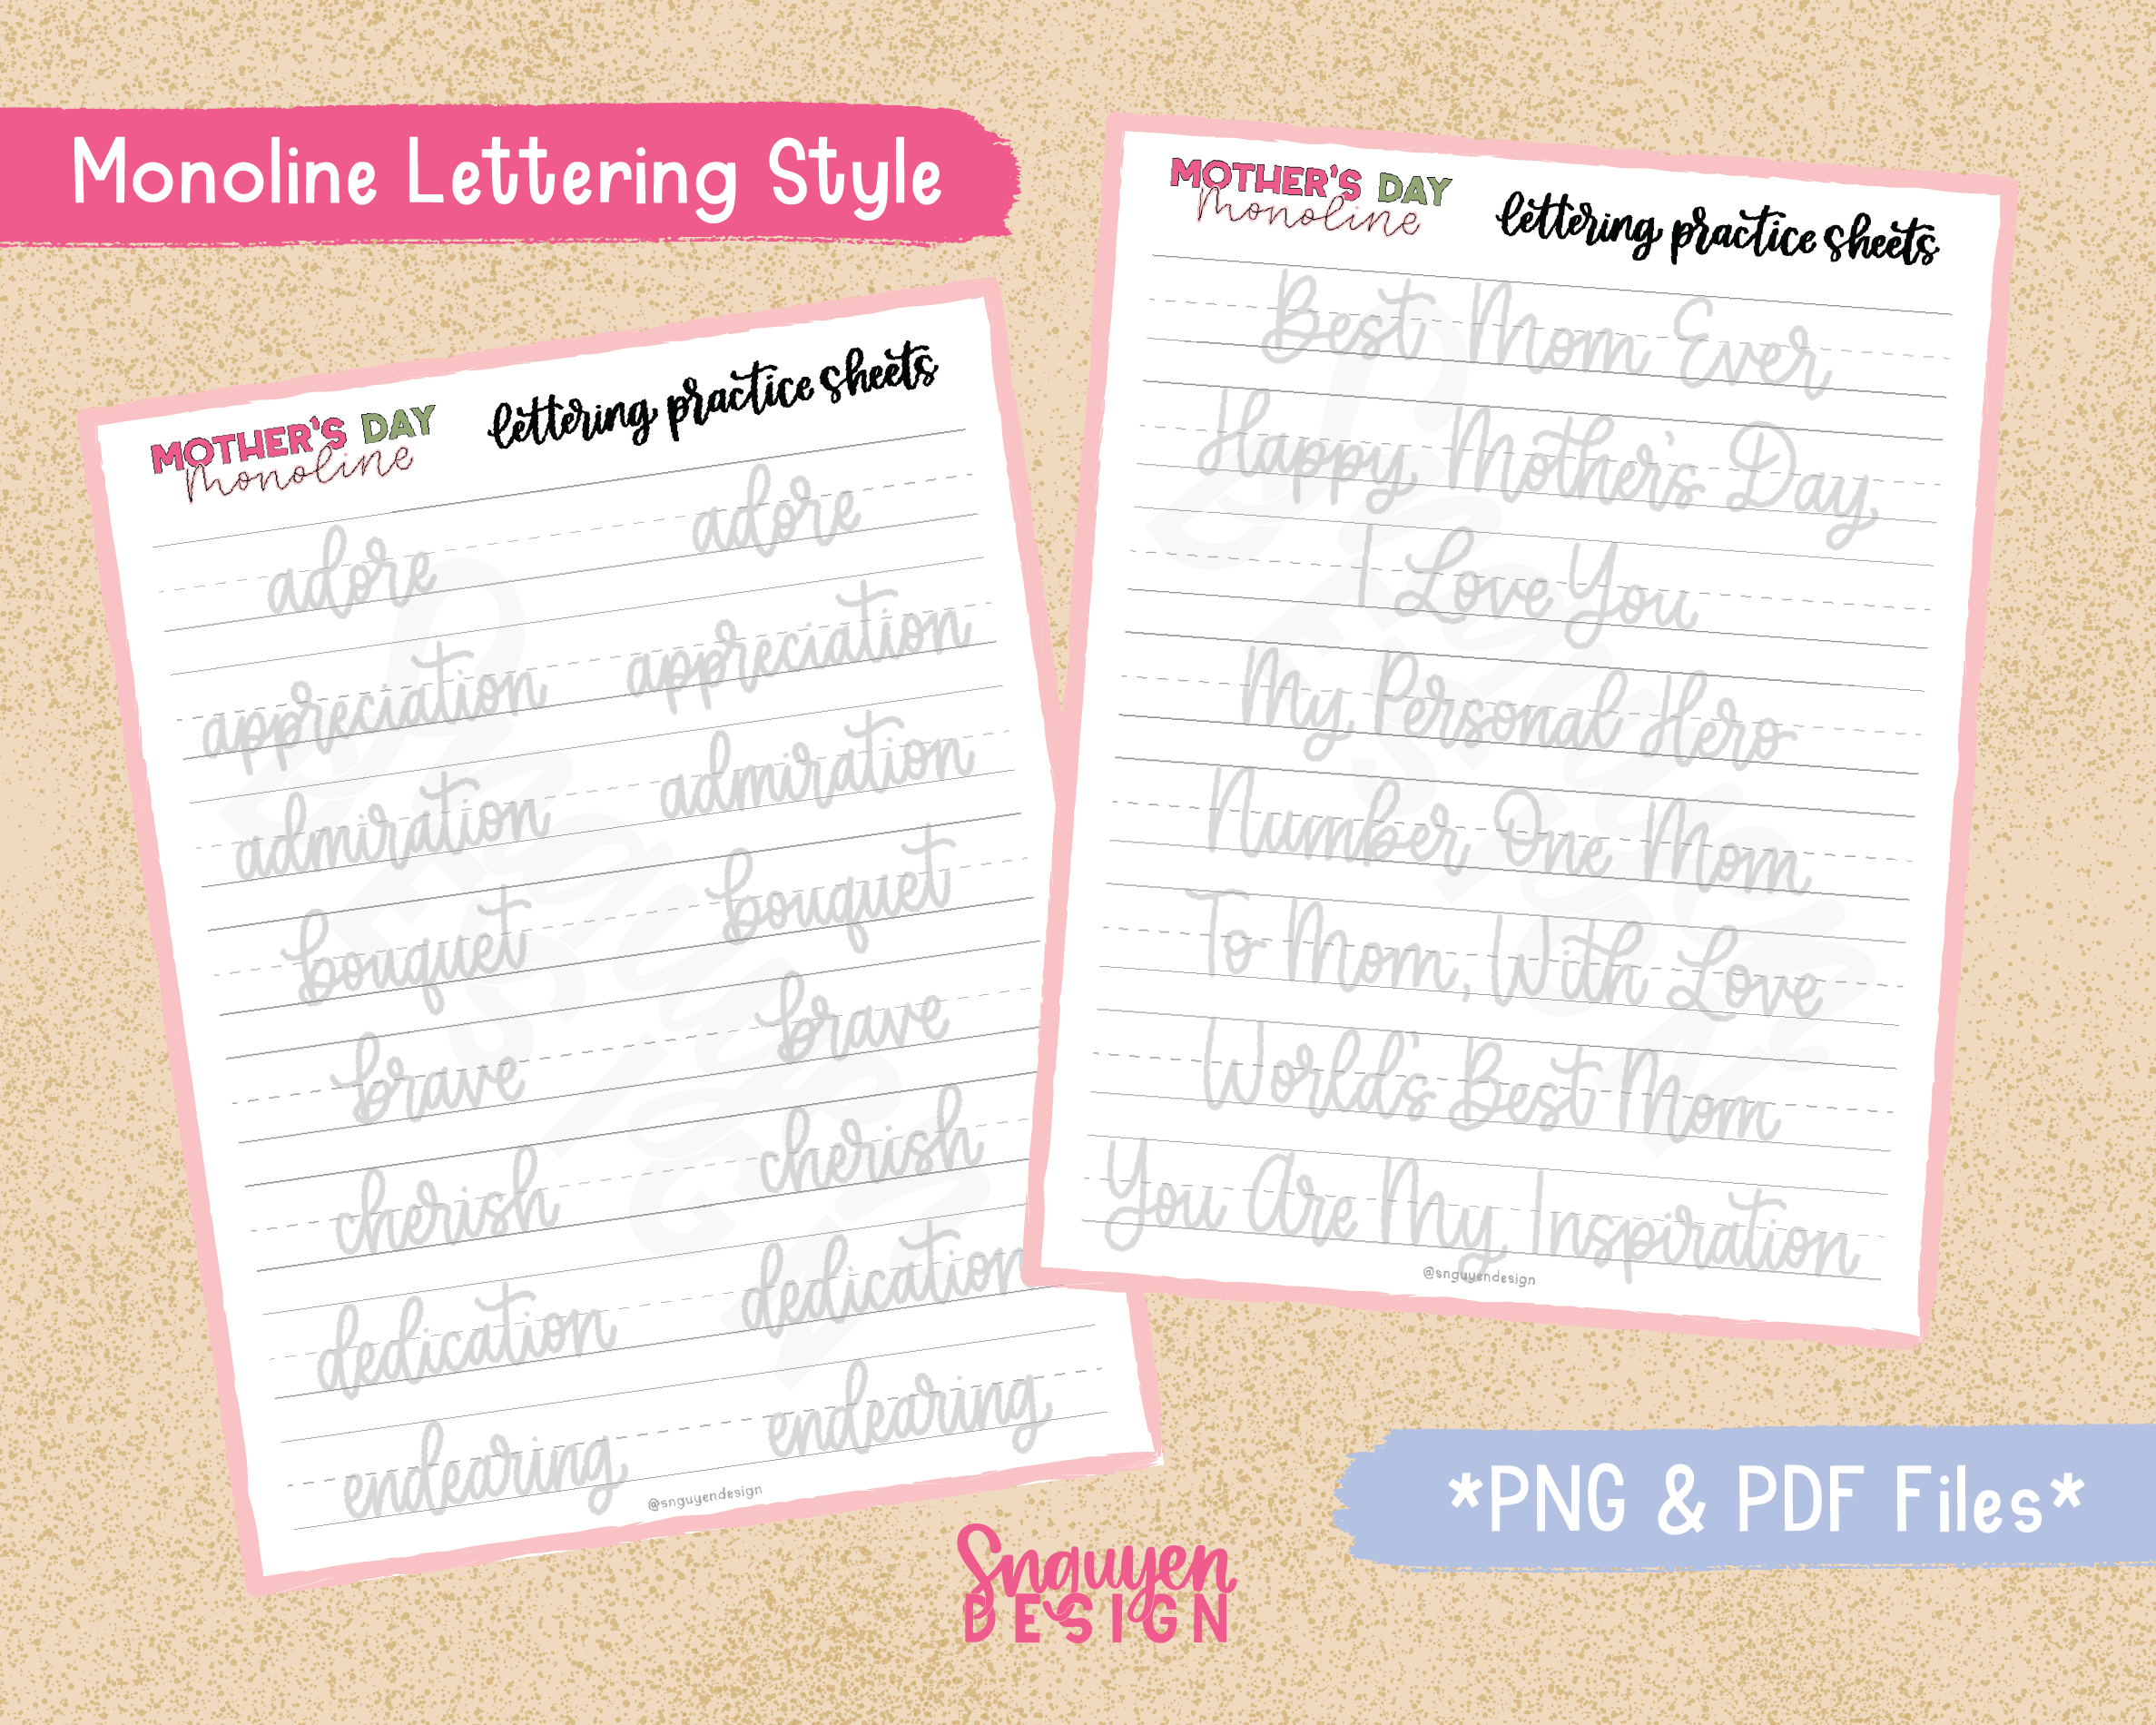 Monoline Lettering Style
MOTHER'S DAY
monoline
lettering practice sheets
adore adore
appreciation appreciation
admiration admiration
bouquet bouquet
brave brave
cherish cherish
dedication dedication
endearing endearing
@snguyendesign
MOTHER'S DAY
monoline
lettering practice sheets
Best Mom Ever
Happy Mother's Day
I Love You
My Personal Hero
Number One Mom
To Mom, With Love
World's Best Mom
You Are My Inspiration
@snguyendesign
*PNG & PDF Files*
Snguyen
DESIGN
Snguyen
DESIGN
Snguyen
DESIGN